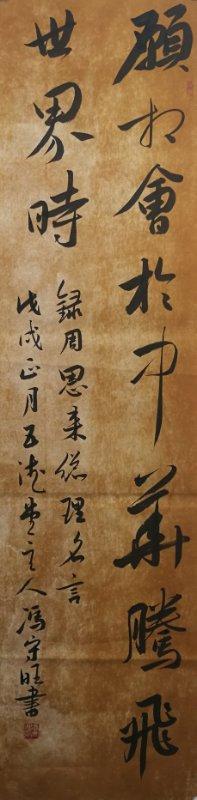 願相會於中華騰飛
世界時
錄周恩來總理名言
戊戌正月五堂主人馮守旺書